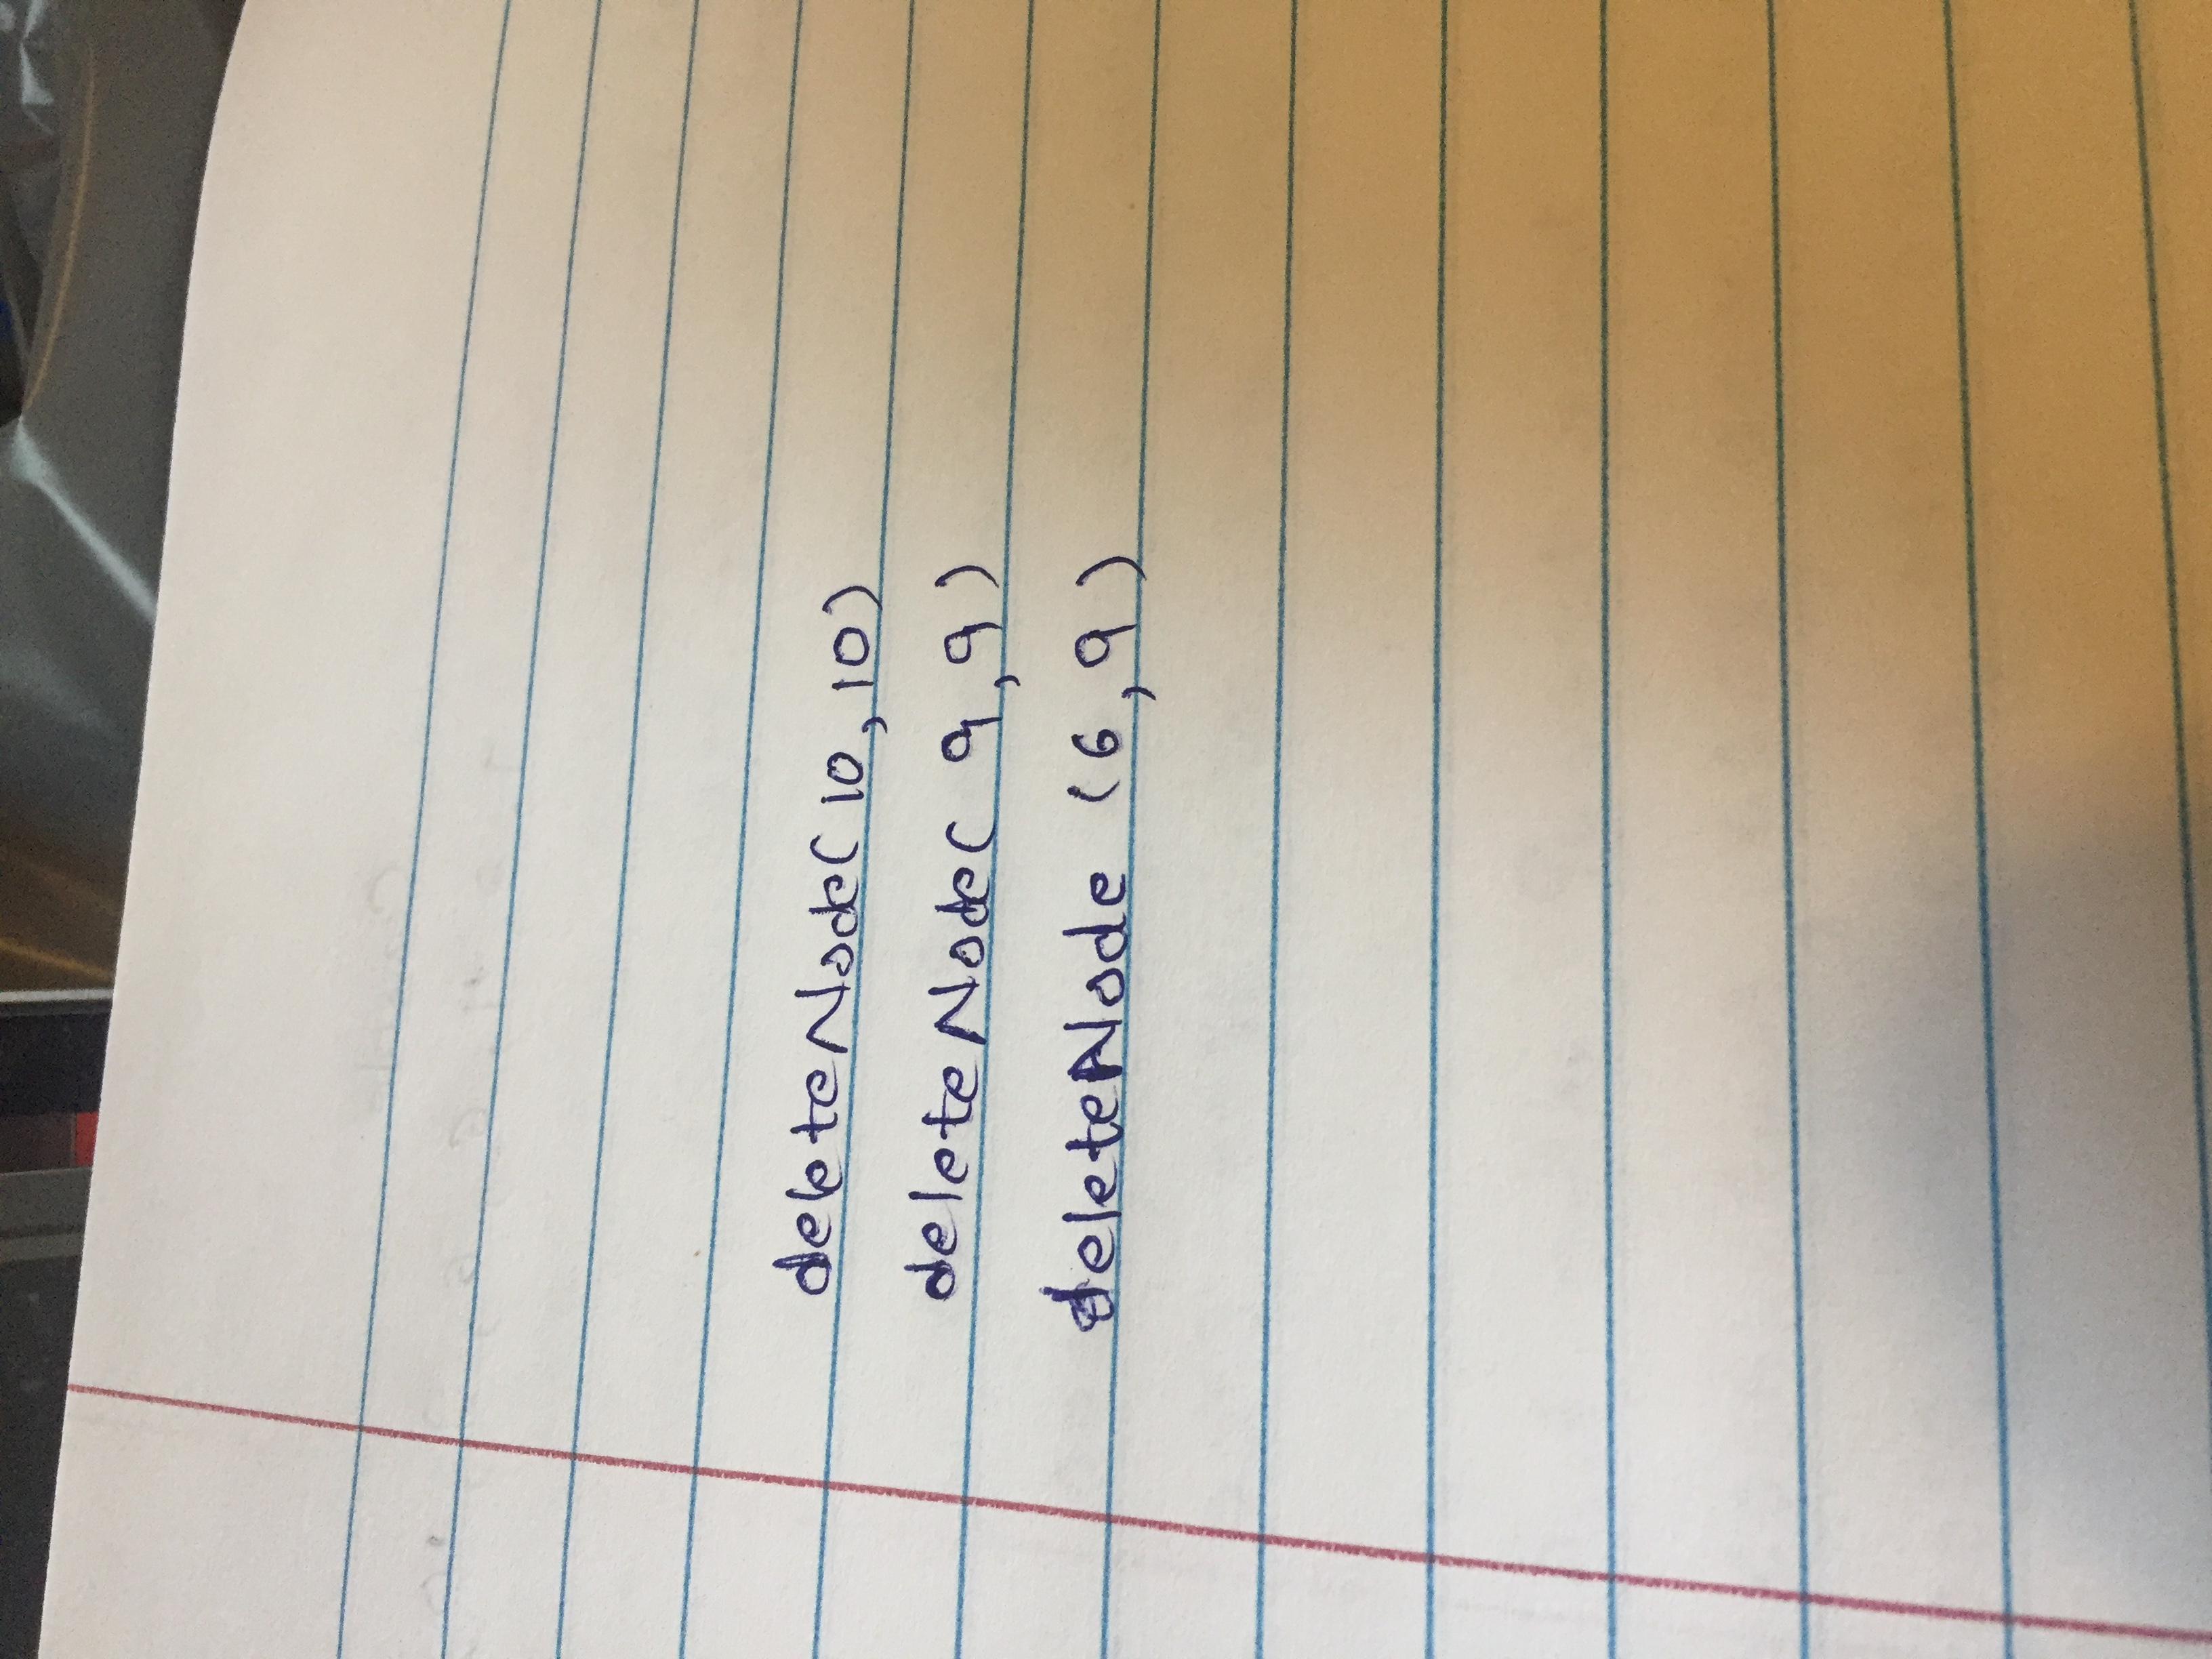 deleteNode(10,10)
deleteNode(9,9)
deleteNode (6,9)